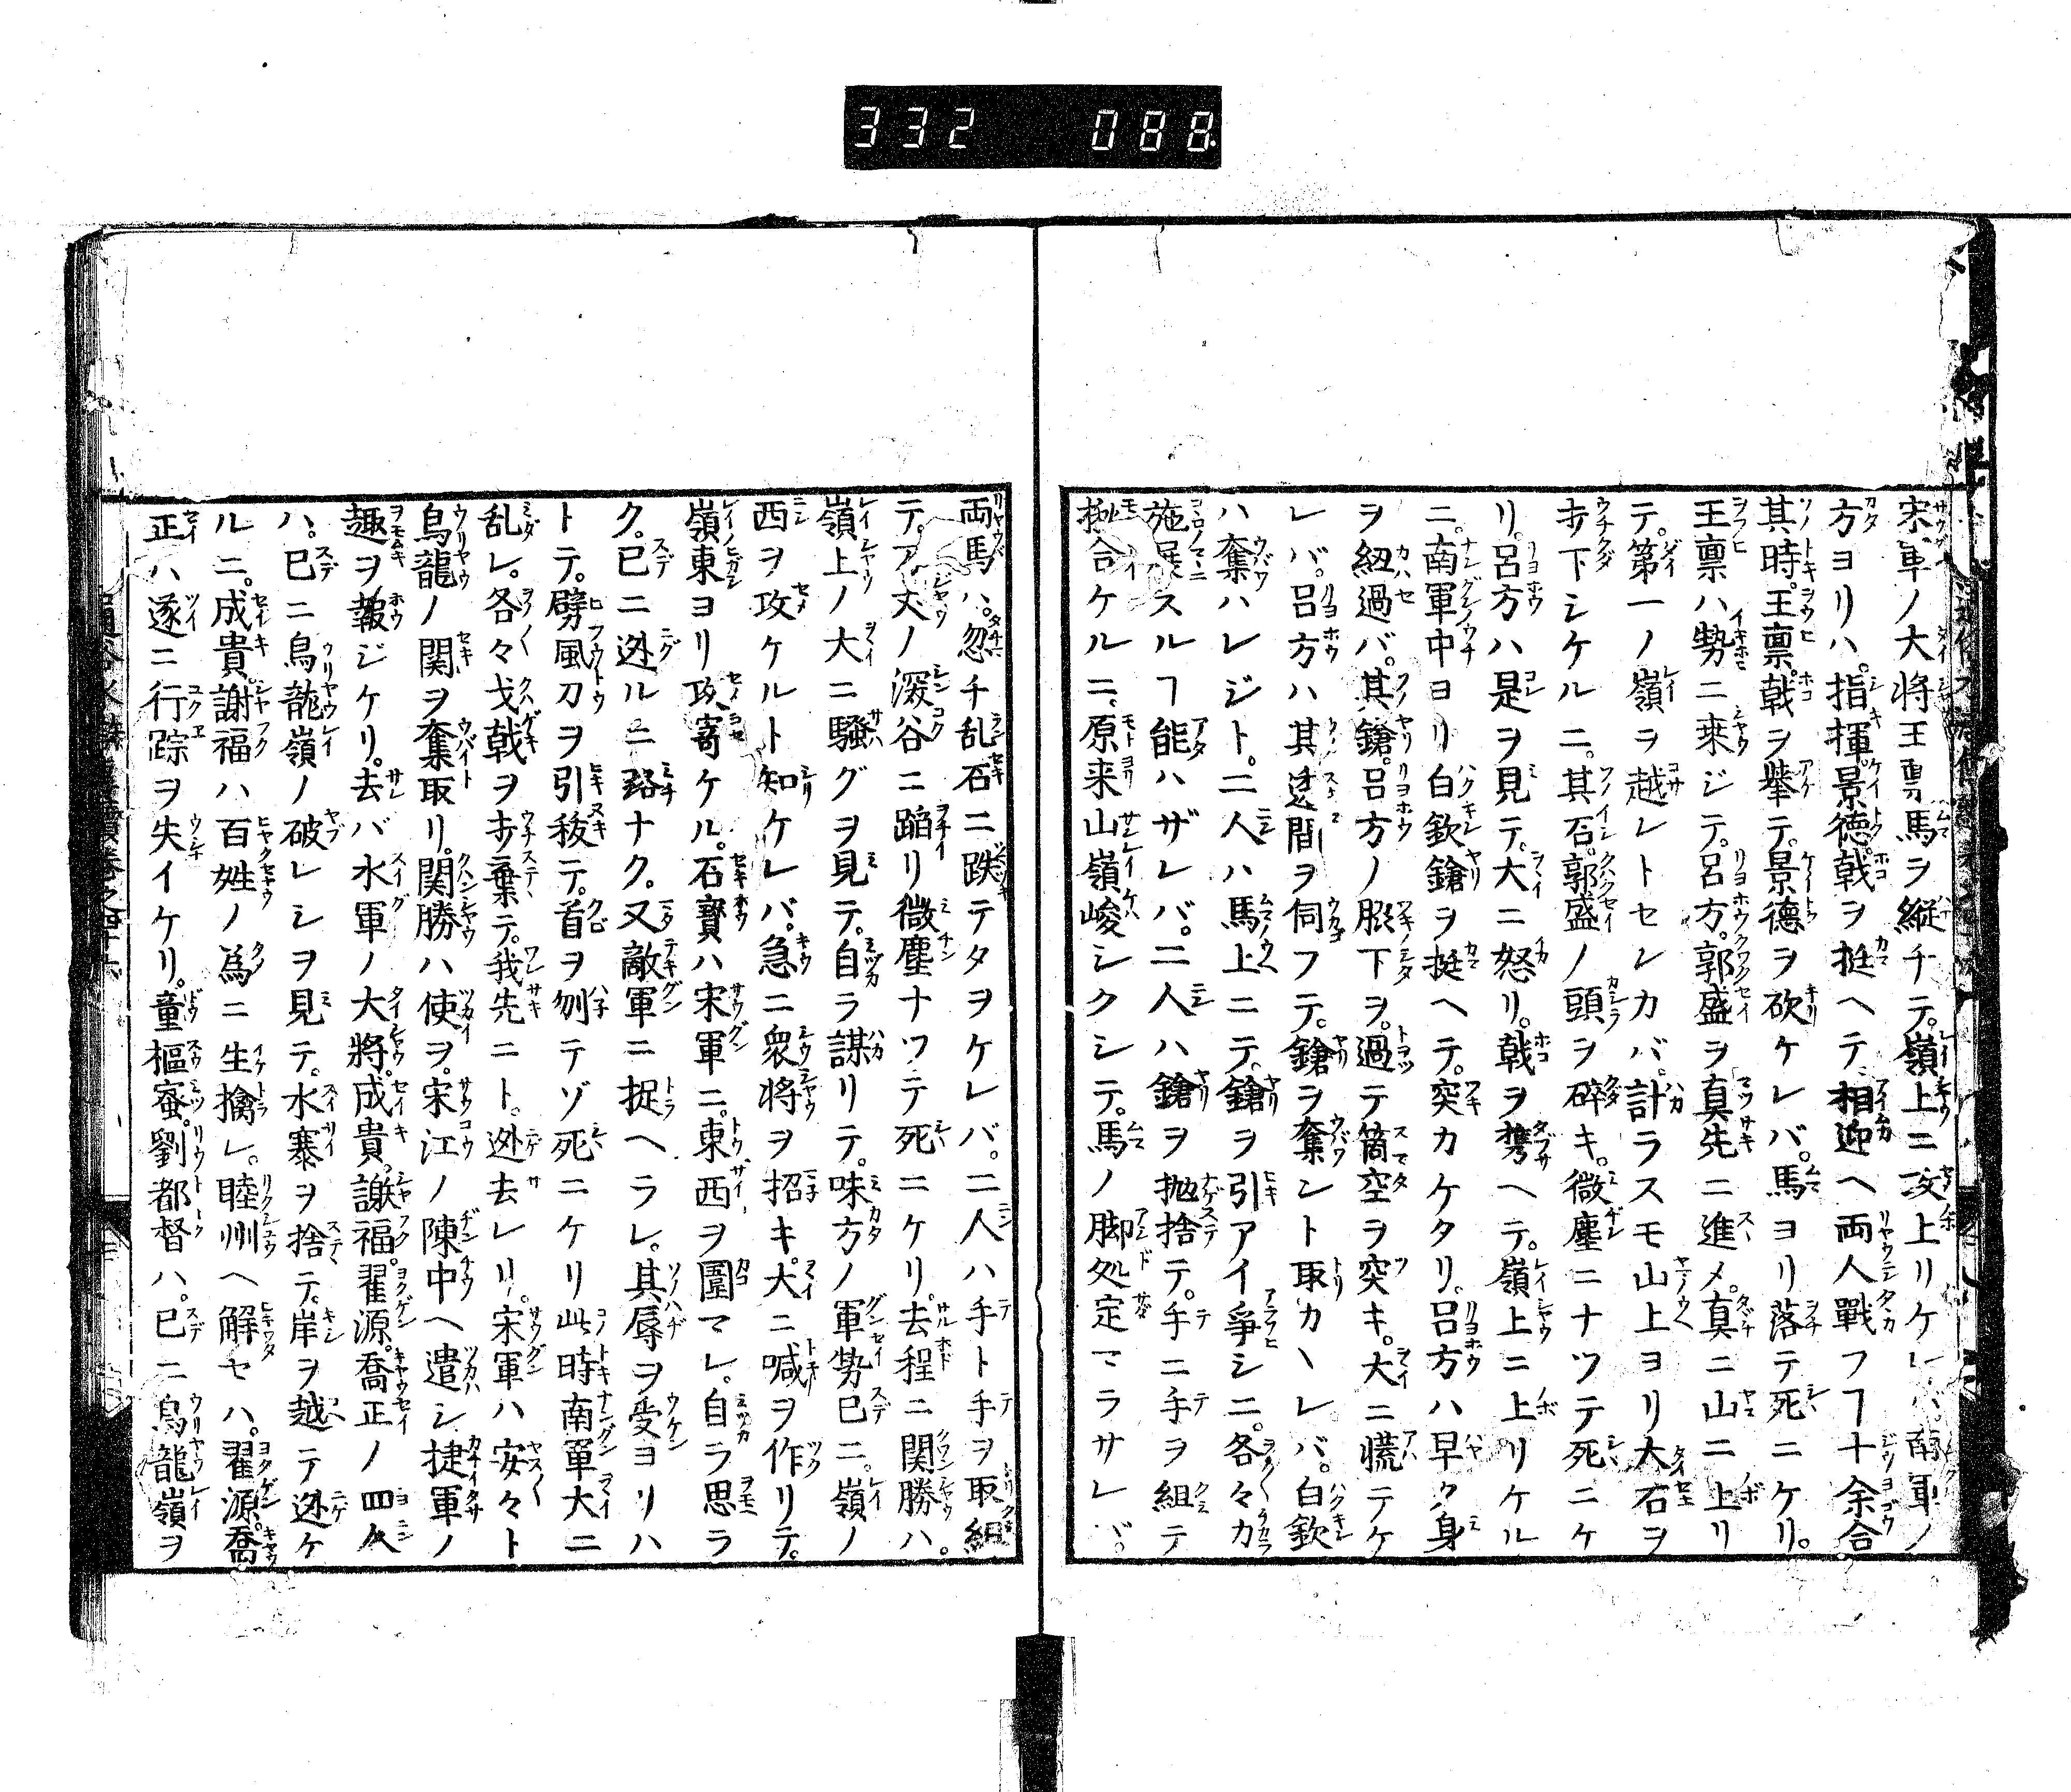 332 088
宋軍ノ大将王禀馬ヲ縦チテ。嶺上ニ攻上リケレバ。南軍ノ
方ヨリハ。指揮景徳。戟ヲ挺ヘテ相迎ヘ両人戰フヿ十余合。
其時。王禀。戟ヲ挙テ。景德ヲ砍ケレバ。馬ヨリ落テ死ニケリ。
王禀ハ勢ニ乗ジテ。呂方。郭盛ヲ真先ニ進メ。真ニ山ニ上リ
テ。第一ノ嶺ヲ越レトセレカバ。計ラスモ山上ヨリ大石ヲ
打下シケルニ。其石。郭盛ノ頭ヲ碎キ。微塵ニナツテ死ニケ
リ。呂方ハ是ヲ見テ。大ニ怒リ。戟ヲ携ヘテ。嶺上ニ上リケル
ニ。南軍中ヨリ白欽鎗ヲ挺ヘテ。突カケタリ。呂方ハ早ク身
ヲ紐過バ。其鎗。呂方ノ脇下ヲ。過テ筒空ヲ突キ。大ニ慌テケ
レバ。呂方ハ其透間ヲ伺フテ。鎗ヲ奪ント取カヽレバ。白欽
ハ奪ハレジト。二人ハ馬上ニテ。鎗ヲ引アイ爭シニ。各々力
施展スルヿ能ハザレバ。二人ハ鎗ヲ抛捨テ。手ニ手ヲ組テ
合ケルニ。原来山嶺峻シクシテ。馬ノ脚処定マラサレバ。
両馬ハ。忽チ乱石ニ跌テタヲケレバ。二人ハ手ト手ヲ取組
テ。丈ノ深谷ニ蹈リ微塵ナツテ死ニケリ。去程ニ関勝ハ。
嶺上ノ大ニ騒グヲ見テ。自ラ謀リテ。味方ノ軍勢已ニ。嶺ノ
西ヲ攻ケルト知ケレバ。急ニ衆将ヲ招キ。大ニ喊ヲ作リテ。
嶺東ヨリ攻寄ケル。石寳ハ宋軍ニ。東西ヲ圍マレ。自ラ思ラ
ク。已ニ迯ルニ路ナク。又敵軍ニ捉ヘラレ。其辱ヲ受ヨリハ
トテ。劈風刀ヲ引拔テ。首ヲ刎テゾ死ニケリ此時南軍大ニ
乱レ。各々戈戟ヲ打棄テ。我先ニト。迯去レリ。宋軍ハ安々ト
烏龍ノ関ヲ奪取リ。関勝ハ使ヲ。宋江ノ陳中ヘ遣シ捷軍ノ
趣ヲ報ジケリ。去バ水軍ノ大將。成貴。謝福。翟源。喬正ノ四人
ハ。已ニ烏龍嶺ノ破レシヲ見テ。水寨ヲ捨テ。岸ヲ越テ迯ケ
ルニ。成貴。謝福ハ百姓ノ為ニ生擒レ。睦州ヘ解セハ。翟源。喬
正ハ遂ニ行踪ヲ失イケリ。童樞蜜。劉都督ハ。已ニ烏龍嶺ヲ